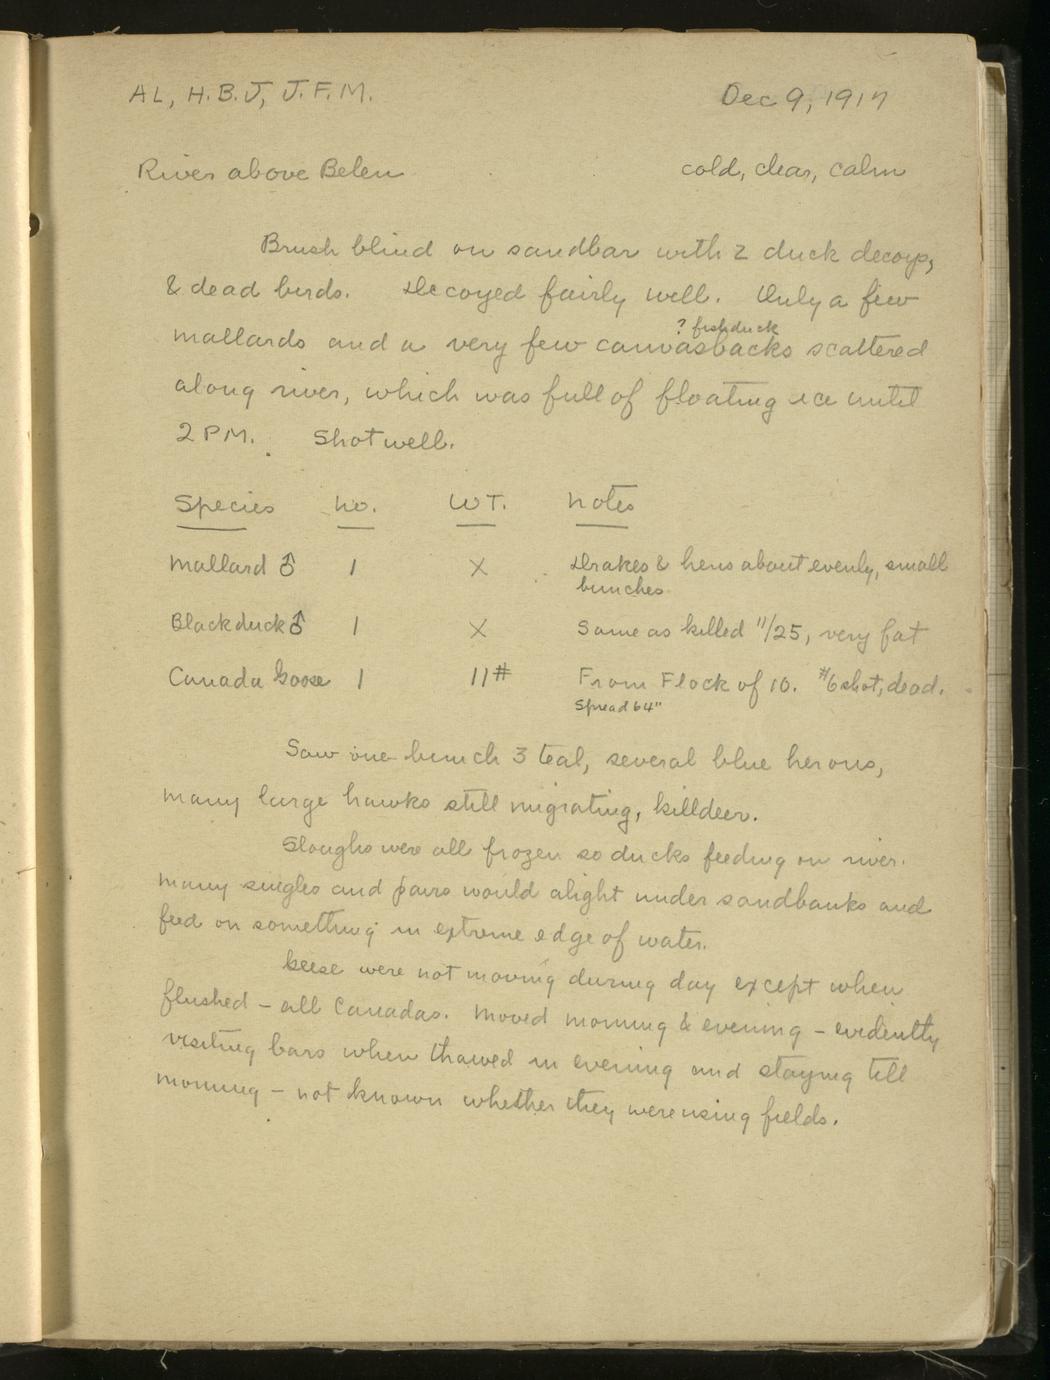 AL, H.B.J, J.F.M. Dec 9, 1917
River above Belen cold, clear, calm
Brush blind on sandbar with 2 duck decoys,
& dead birds. Decoyed fairly well. Only a few
? fishduck
mallards and a very few canvasbacks scattered
along river, which was full of floating ice until
2 PM. Shot well.
Species No. WT. Notes
Mallard ♂ 1 X Drakes & hens about evenly, small
bunches
Black duck ♂ 1 X Same as killed 11/25, very fat
Canada Goose 1 11# From Flock of 10. #6 shot, dead.
Spread 64"
Saw one bunch 3 teal, several blue herons,
many large hawks still migrating, killdeer.
Sloughs were all frozen so ducks feeding on river.
Many singles and pairs would alight under sandbanks and
feed on something in extreme edge of water.
Geese were not moving during day except when
flushed – all Canadas. Moved morning & evening – evidently
visiting bars when thawed in evening and staying till
morning – not known whether they were using fields.